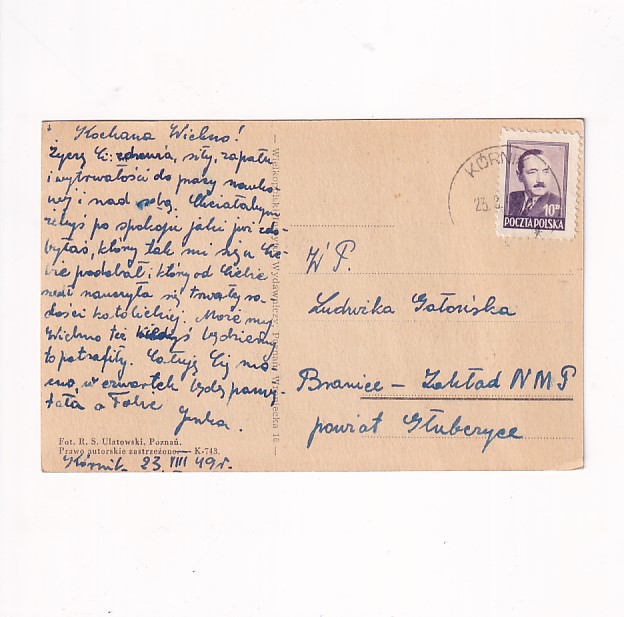 Kochana Wichno!
Życzę Ci zdrowia, siły, zapału
i wytrwałości do pracy nauko-
wej i nad sobą. Chciałabym
żebyś po spokoju jaki już zdo-
byłaś, który tak mi się u Cie-
bie podobał i który od Ciebie
nauczyła się trwałej ra-
dości katolickiej. Może my
Wichno też kiedyś będziemy
to potrafiły. Całuję Cię mo-
cno, w czwartek będę pamię-
tała o Tobie
Jenka.
Fot. R. S. Ulatowski, Poznań.
Prawo autorskie zastrzeżono. — K-743.
Kórnik 23 VIII 49 r.
KÓRNI
23.8.
10 ZŁ
POCZTA POLSKA
W P.
Ludwika Gatońska
Branice – Zakład NMP
powiat Głubczyce